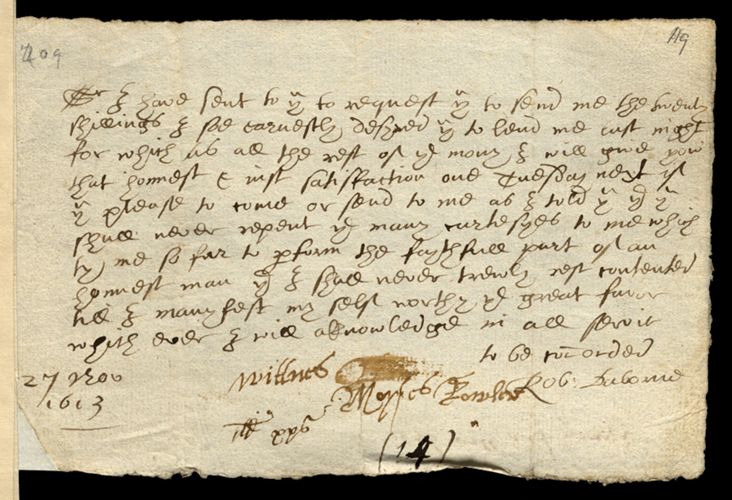 209
119
Sr I have sent to yu to request yu to send me the twenty
shillings I soe earnestly desyred yu to lend me last night
for which as all the rest of yr mony I will give you
that honnest & iust satisfaction one Tuesday next if
yu please to come or send to me as I told yu yt yu
shall never repent yr many curtesyes to me which
ty me so far to pform the faythfull part of an
honnest man yt I shall never trewly rest contented
till I manyfest my self worthy yr great favor
which ever I will acknowledge in all
to be
27 Nov
1613
Rob: Daborne
wittnes Moyses Bowler
xxs
(14)